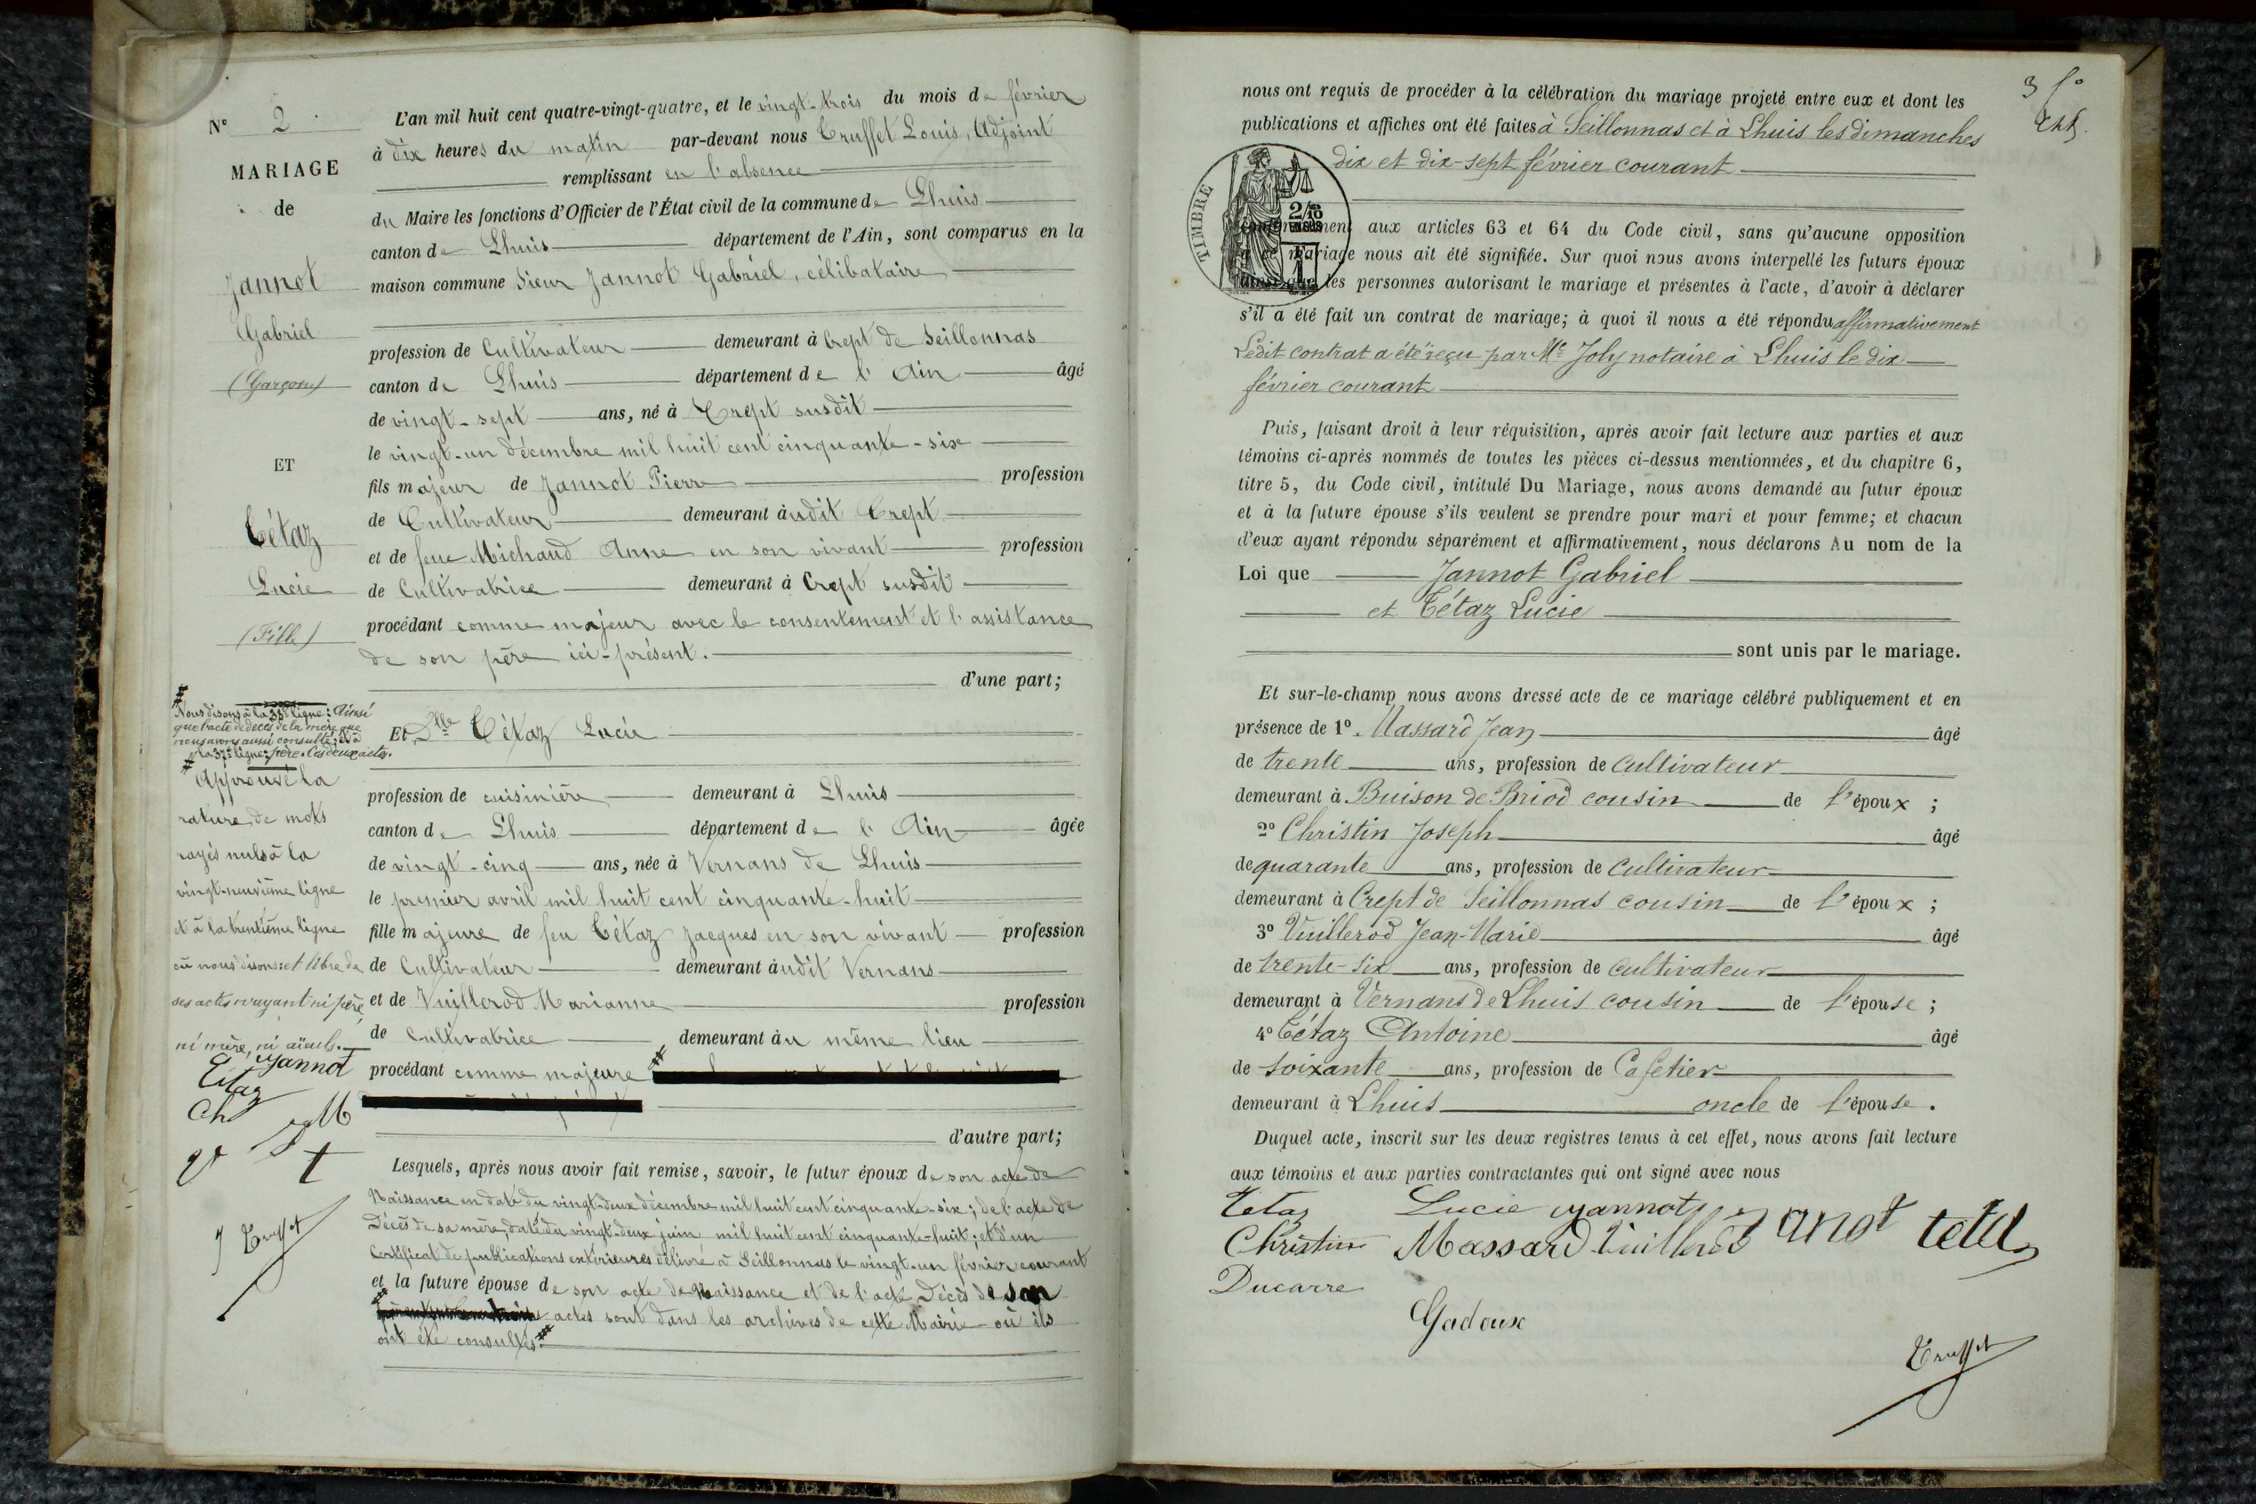 N° 2
MARIAGE
de
Jannot
Gabriel
(Garçon)
ET
Tétaz
Lucie
(Fille)
# Nous disons à la 35e ligne: Ainsi
que l'acte de décès de la mère que
nous avons aussi consulté; et à
la 37e ligne: père. Ces deux actes.
# Approuvé la
rature de mots
rayés nuls à la
vingt-neuvième ligne
et à la trentième ligne
où nous disons: et libre de
ses actes n'ayant ni père,
ni mère, ni aïeuls.
Jannot
Tétaz
Ch
M
J Truffet
L'an mil huit cent quatre-vingt-quatre, et le vingt-trois du mois de février
à dix heures du matin par-devant nous Truffet Louis, Adjoint
remplissant en l'absence
du Maire les fonctions d'Officier de l'État civil de la commune de Lhuis
canton de Lhuis département de l'Ain, sont comparus en la
maison commune Sieur Jannot Gabriel, célibataire
profession de Cultivateur demeurant à Crept de Seillonnas
canton de Lhuis département de l'Ain âgé
de vingt-sept ans, né à Crept susdit
le vingt-un décembre mil huit cent cinquante-six
fils majeur de Jannot Pierre profession
de Cultivateur demeurant àudit Crept
et de feue Michaud Anne en son vivant profession
de Cultivatrice demeurant à Crept susdit
procédant comme majeur avec le consentement et l'assistance
de son père ici-présent.
d'une part;
Et Dlle Tétaz Lucie
profession de cuisinière demeurant à Lhuis
canton de Lhuis département de l'Ain âgée
de vingt-cinq ans, née à Vernans de Lhuis
le premier avril mil huit cent cinquante-huit
fille majeure de feu Tétaz Jacques en son vivant profession
de Cultivateur demeurant àudit Vernans
et de Vuillerod Marianne profession
de Cultivatrice demeurant àu même lieu
procédant comme majeure #
d'autre part;
Lesquels, après nous avoir fait remise, savoir, le futur époux de son acte de
Naissance en date du vingt-deux décembre mil huit cent cinquante-six; de l'acte de
Décès de sa mère, daté du vingt-deux juin mil huit cent cinquante-huit; et d'un
Certificat de publications extérieures délivré à Seillonnas le vingt-un février courant
et la future épouse de son acte de Naissance et de l'acte Décès de son
# actes sont dans les archives de cette Mairie où ils
ont été consultés. #
3 f°
nous ont requis de procéder à la célébration du mariage projeté entre eux et dont les
publications et affiches ont été faites à Seillonnas et à Lhuis les dimanches
dix et dix-sept février courant
TIMBRE
2/10
conformément aux articles 63 et 64 du Code civil, sans qu'aucune opposition
à ce mariage nous ait été signifiée. Sur quoi nous avons interpellé les futurs époux
ainsi que les personnes autorisant le mariage et présentes à l'acte, d'avoir à déclarer
s'il a été fait un contrat de mariage; à quoi il nous a été répondu affirmativement
Ledit contrat a été reçu par Me Joly notaire à Lhuis le dix
février courant
Puis, faisant droit à leur réquisition, après avoir fait lecture aux parties et aux
témoins ci-après nommés de toutes les pièces ci-dessus mentionnées, et du chapitre 6,
titre 5, du Code civil, intitulé Du Mariage, nous avons demandé au futur époux
et à la future épouse s'ils veulent se prendre pour mari et pour femme; et chacun
d'eux ayant répondu séparément et affirmativement, nous déclarons Au nom de la
Loi que Jannot Gabriel
et Tétaz Lucie
sont unis par le mariage.
Et sur-le-champ nous avons dressé acte de ce mariage célébré publiquement et en
présence de 1°. Massard Jean âgé
de trente ans, profession de Cultivateur
demeurant à Buison de Briod cousin de l'époux ;
2° Christin Joseph âgé
de quarante ans, profession de Cultivateur
demeurant à Crept de Seillonnas cousin de l'époux ;
3° Vuillerod Jean-Marie âgé
de trente-six ans, profession de Cultivateur
demeurant à Vernans de Lhuis cousin de l'épouse ;
4° Tétaz Antoine âgé
de soixante ans, profession de Cafetier
demeurant à Lhuis oncle de l'épouse.
Duquel acte, inscrit sur les deux registres tenus à cet effet, nous avons fait lecture
aux témoins et aux parties contractantes qui ont signé avec nous
Tétaz Lucie Jannot
Christin Massard Vuillerod
Ducarre
Gadoux
Truffet